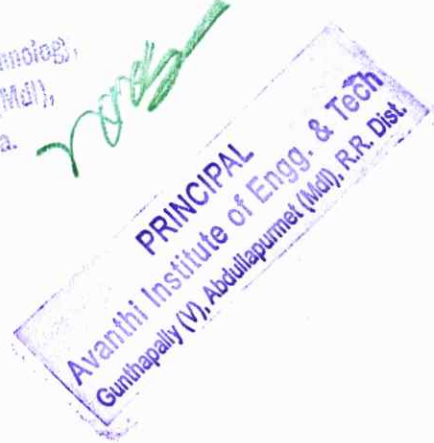 (Mdl),
a.
PRINCIPAL
Avanthi Institute of Engg. & Tech
Gunthapally (V), Abdullapurmet (Mdl), R.R. Dist.